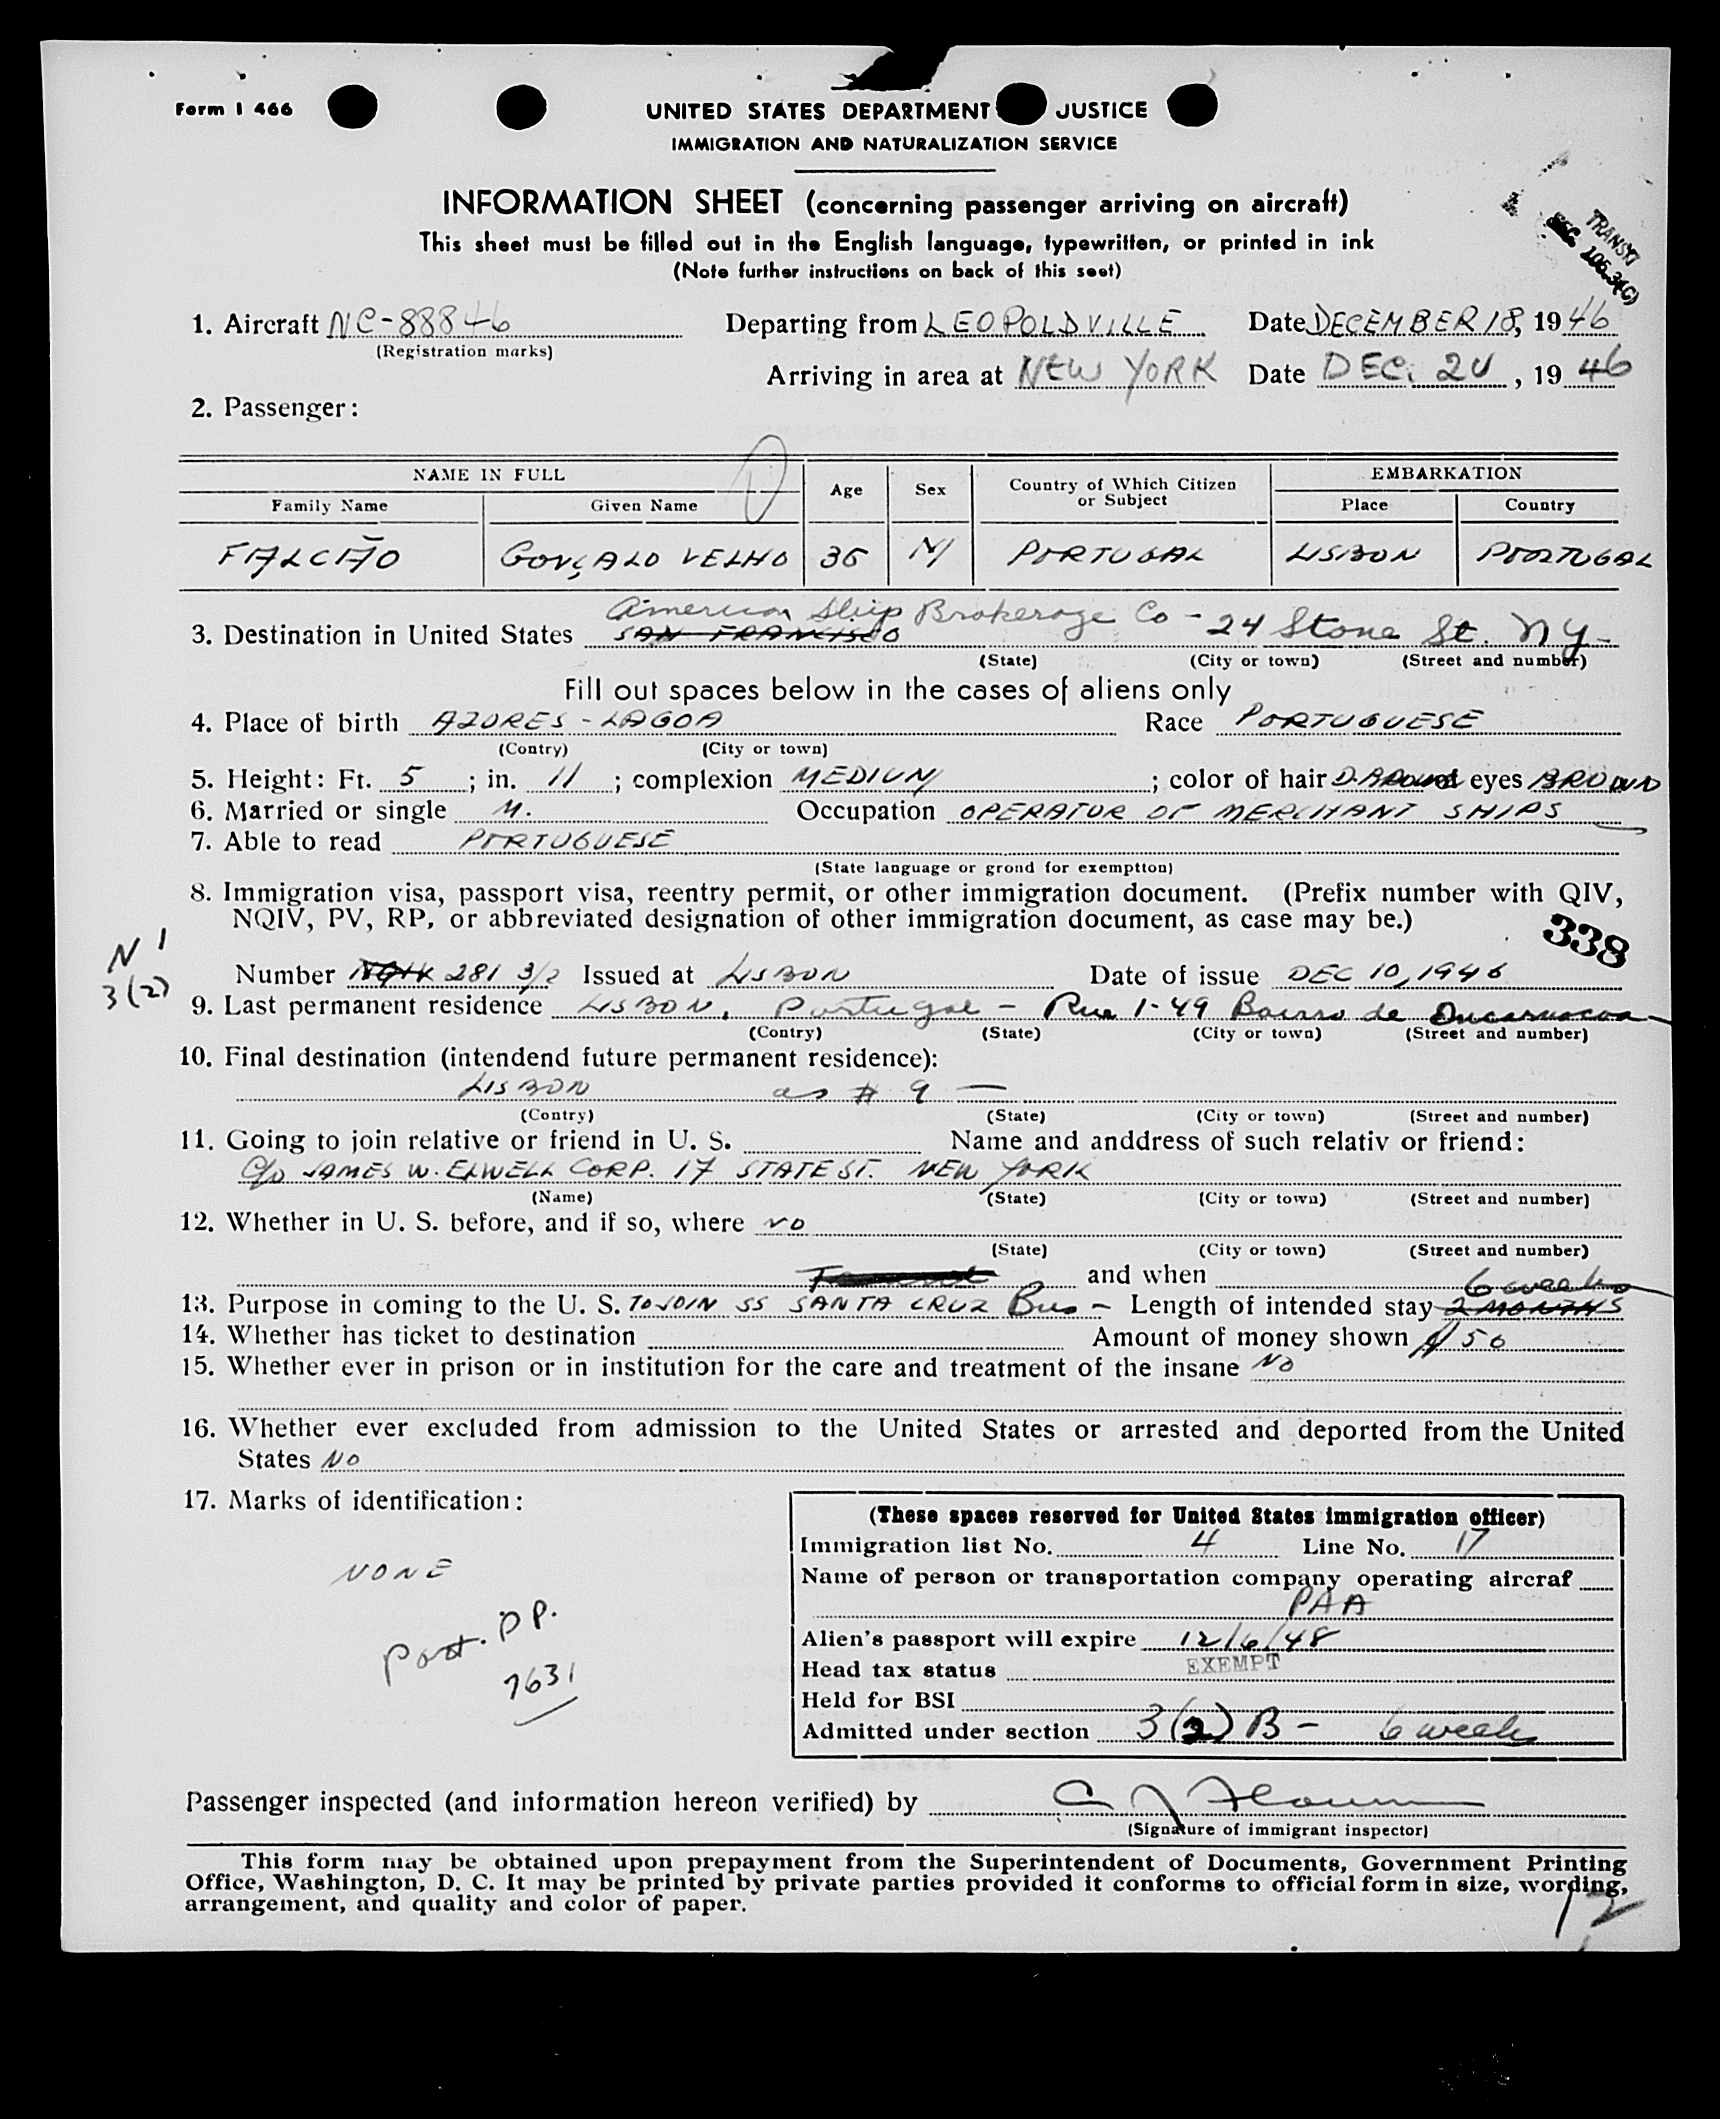 Form I 466
UNITED STATES DEPARTMENT JUSTICE
IMMIGRATION AND NATURALIZATION SERVICE
INFORMATION SHEET (concerning passenger arriving on aircraft)
This sheet must be filled out in the English language, typewritten, or printed in ink
(Note further instructions on back of this seet)
TRANSIT
SEC. 105.3(C)
1. Aircraft NC-88846 Departing from LEOPOLDVILLE Date DECEMBER 18, 1946
(Registration marks)
Arriving in area at NEW YORK Date DEC. 20, 1946
2. Passenger:
NAME IN FULL Age Sex Country of Which Citizen or Subject EMBARKATION
Family Name Given Name Place Country
FALCÃO GONÇALO VELHO 36 M PORTUGAL LISBON PORTUGAL
American Ship Brokerage Co - 24 Stone St. NY-
3. Destination in United States SAN FRANCISCO
(State) (City or town) (Street and number)
Fill out spaces below in the cases of aliens only
4. Place of birth AZORES - LAGOA Race PORTUGUESE
(Contry) (City or town)
5. Height: Ft. 5 ; in. 11 ; complexion MEDIUM ; color of hair D. BROWN eyes BROWN
6. Married or single M. Occupation OPERATOR OF MERCHANT SHIPS
7. Able to read PORTUGUESE
(State language or grond for exemptton)
8. Immigration visa, passport visa, reentry permit, or other immigration document. (Prefix number with QIV,
NQIV, PV, RP, or abbreviated designation of other immigration document, as case may be.)
338
N 1
3(2)
Number 281 3/2 Issued at LISBON Date of issue DEC 10, 1946
9. Last permanent residence LISBON, Portugal - Rue 1-49 Bairro de
(Contry) (State) (City or town) (Street and number)
10. Final destination (intendend future permanent residence):
LISBON as # 9 —
(Contry) (State) (City or town) (Street and number)
11. Going to join relative or friend in U. S. Name and anddress of such relativ or friend:
C/o JAMES W. ELWELL CORP. 17 STATE ST. NEW YORK
(Name) (State) (City or town) (Street and number)
12. Whether in U. S. before, and if so, where NO
(State) (City or town) (Street and number)
and when
6 weeks
13. Purpose in coming to the U. S. TO JOIN SS SANTA CRUZ Bus - Length of intended stay 2 MONTHS
14. Whether has ticket to destination Amount of money shown $ 50
15. Whether ever in prison or in institution for the care and treatment of the insane NO
16. Whether ever excluded from admission to the United States or arrested and deported from the United
States NO
17. Marks of identification:
NONE
Port. PP.
7631
(These spaces reserved for United States immigration officer)
Immigration list No. 4 Line No. 17
Name of person or transportation company operating aircraf
PAA
Alien's passport will expire 12/6/48
Head tax status EXEMPT
Held for BSI
Admitted under section 3(2) B - 6 weeks
Passenger inspected (and information hereon verified) by
(Signature of immigrant inspector)
This form may be obtained upon prepayment from the Superintendent of Documents, Government Printing
Office, Washington, D. C. It may be printed by private parties provided it conforms to official form in size, wording,
arrangement, and quality and color of paper.
12